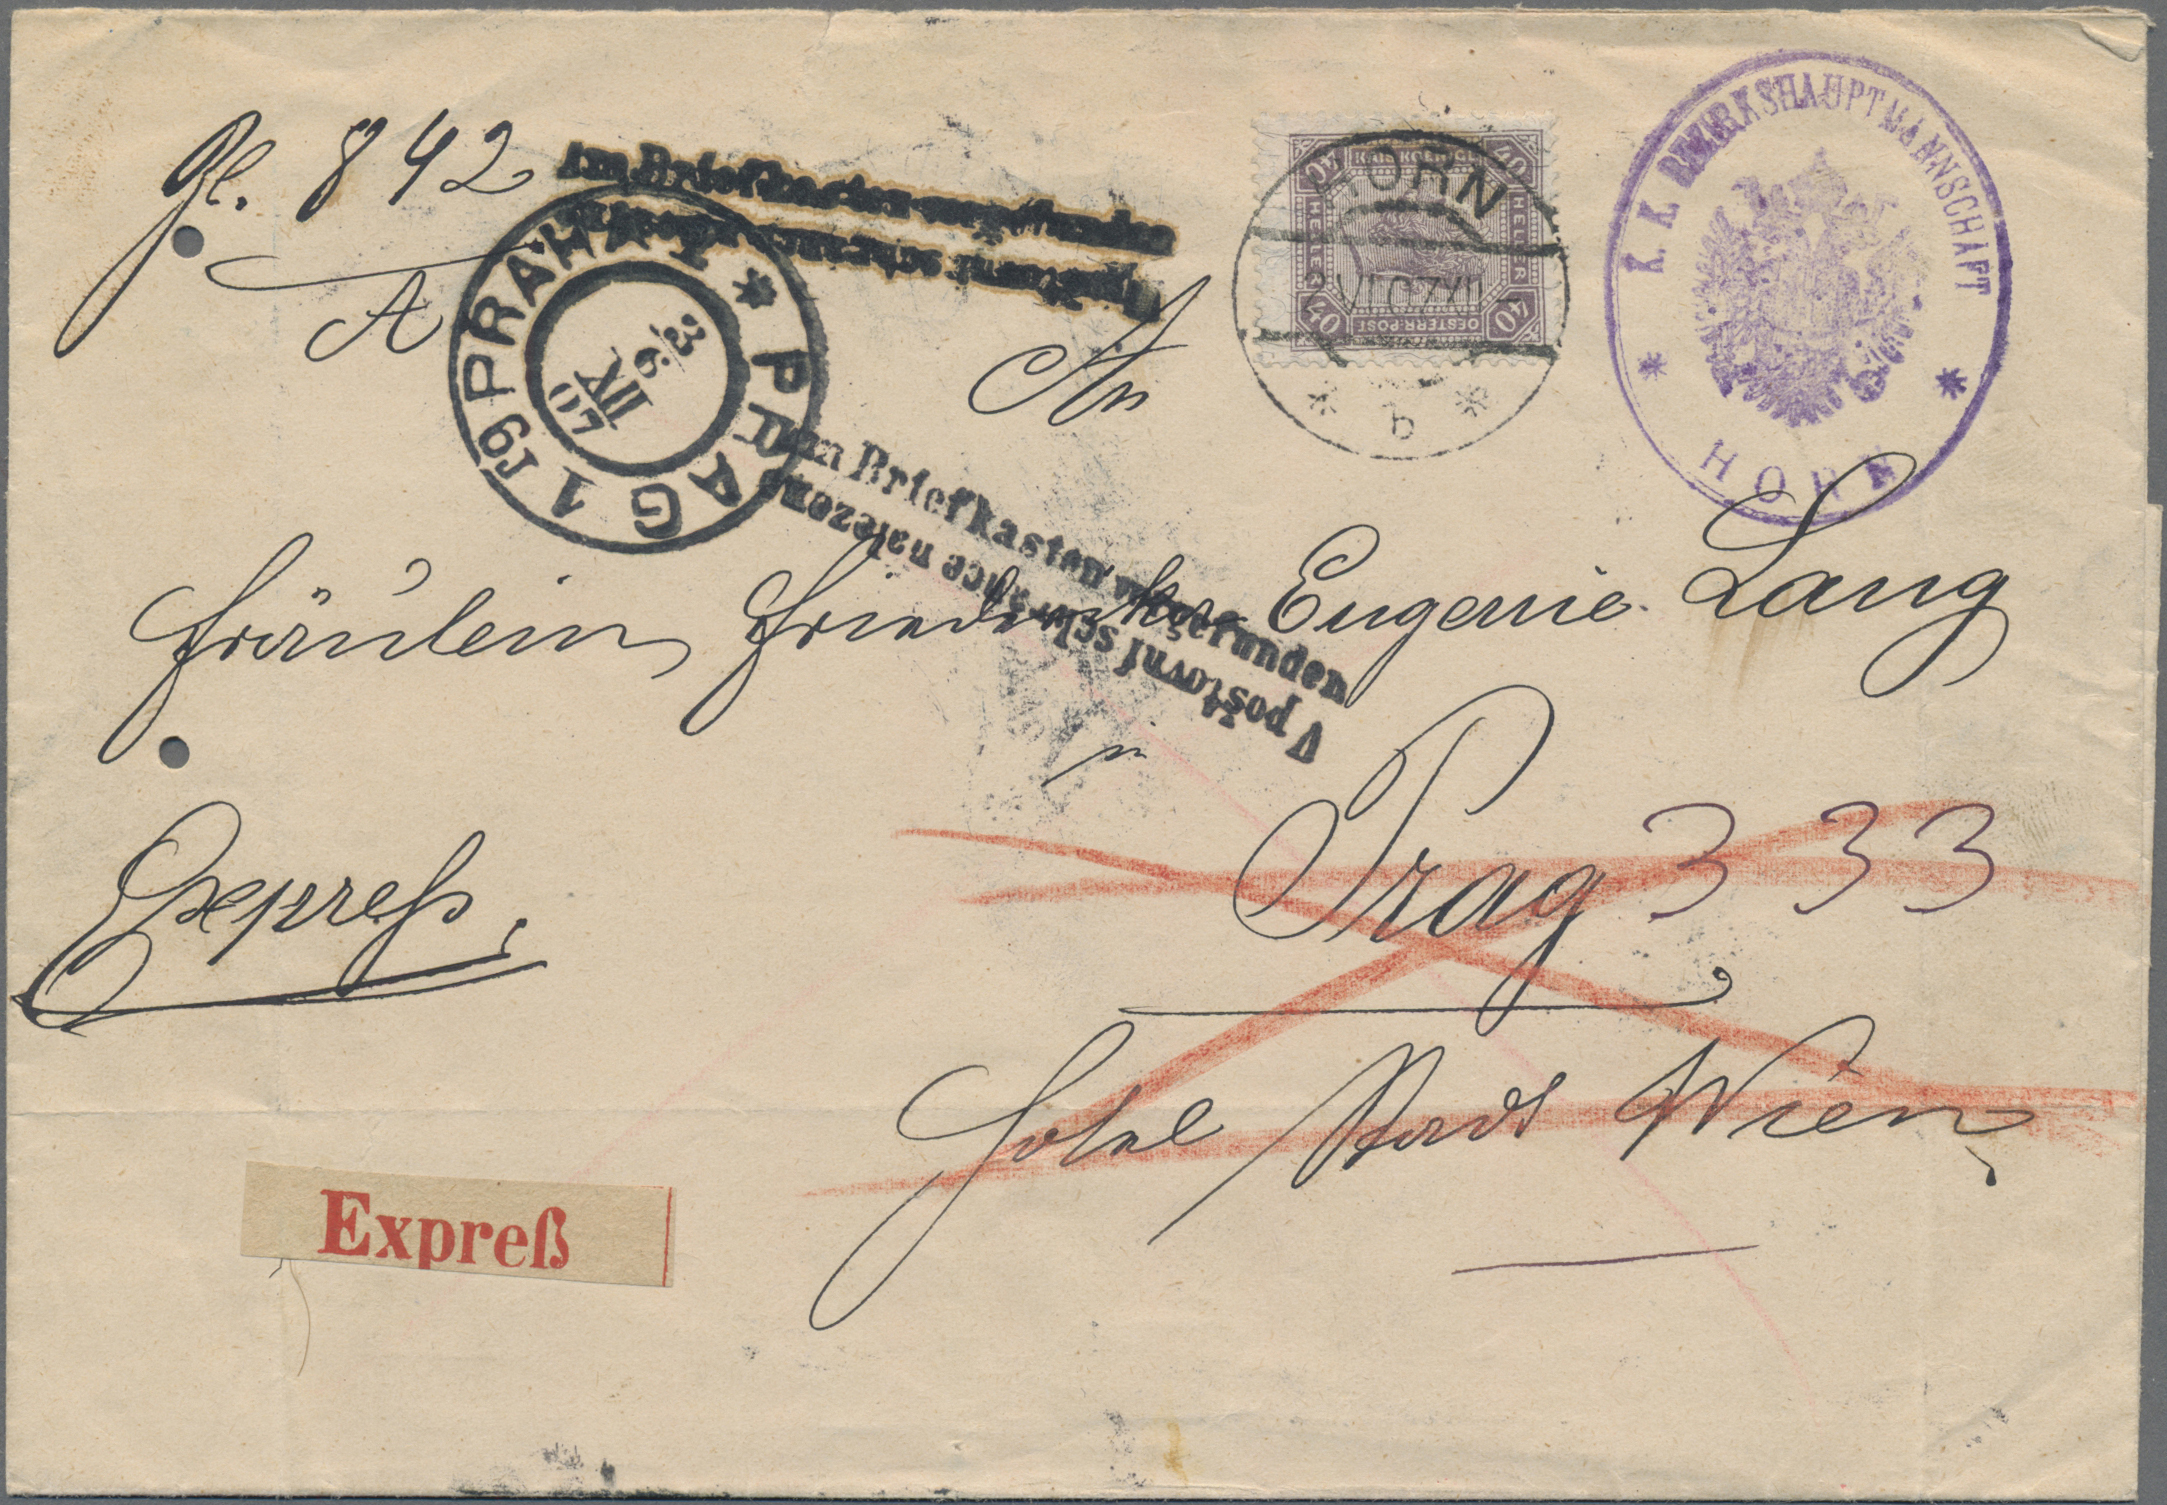 Gl. 842
A
Im Briefkasten vorgefunden
V poštovní schránce nalezeno
PRAHA 1 * PRAG 1 * 19
3
6
XII
07
HORN
2 VII 07 XII
* b *
40 KAIS. KOENIGL. 40
HELLER HELLER
40 OESTERR. POST 40
K. K. BEZIRKSHAUPTMANNSCHAFT
* HORN *
An
Im Briefkasten vorgefunden
V poštovní schránce nalezeno
Fräulein Friederike Eugenie Lang
in
Prag 333
Expreß.
Hotel Stadt Wien
Expreß